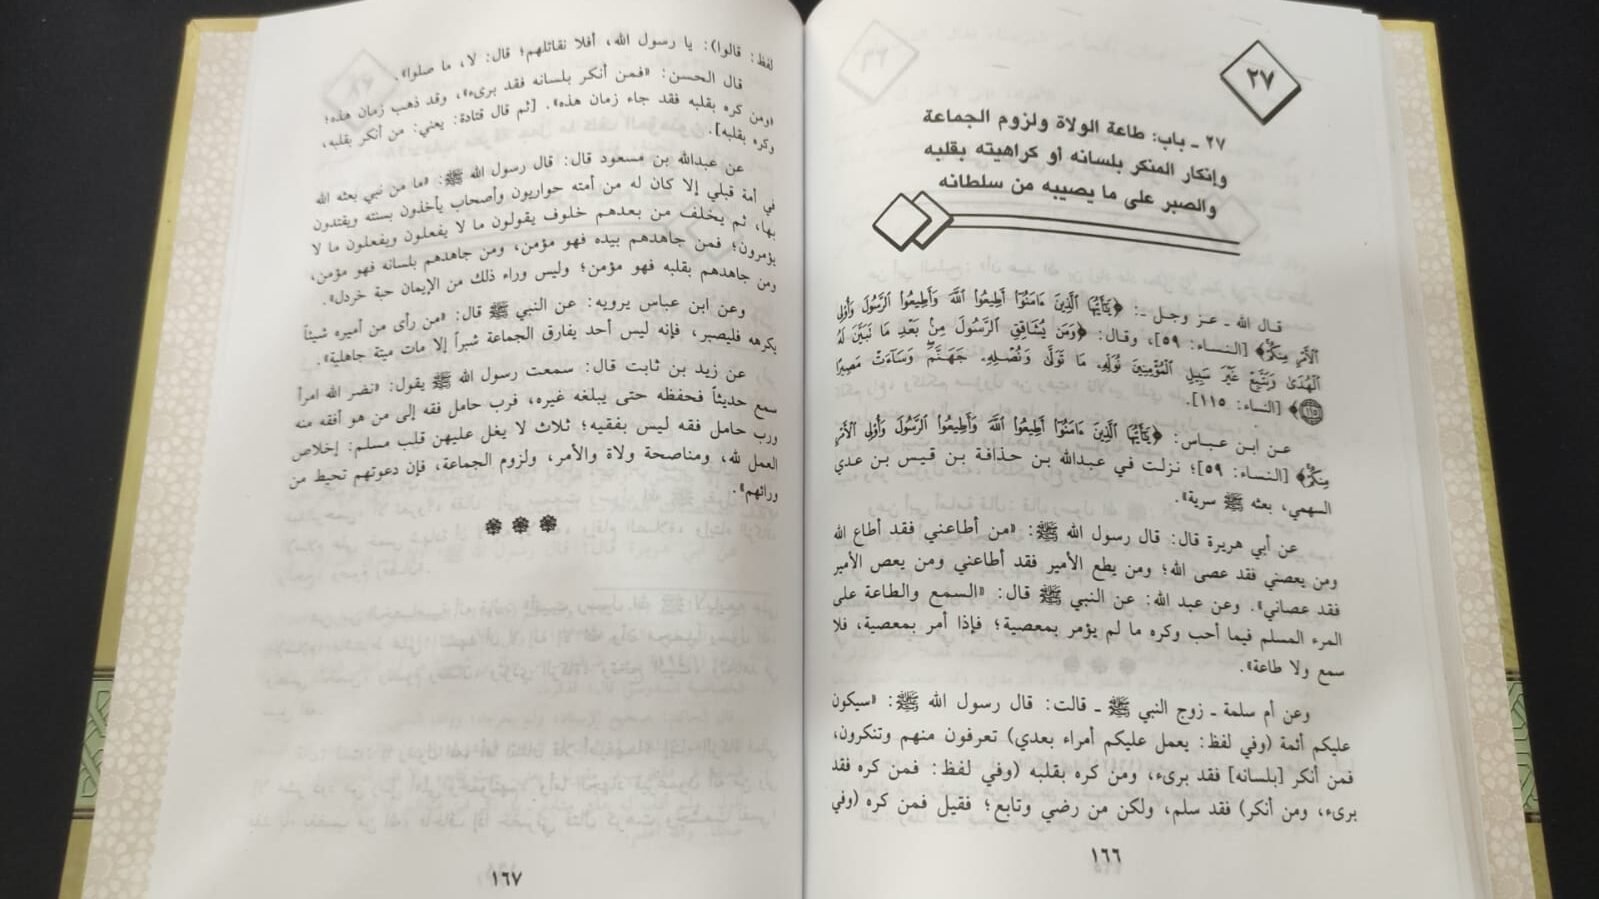 ٢٧
٢٧ ـ باب: طاعة الولاة ولزوم الجماعة
وإنكار المنكر بلسانه أو كراهيته بقلبه
والصبر على ما يصيبه من سلطانه
قال الله ـ عز وجل ـ: ﴿يَٰٓأَيُّهَا ٱلَّذِينَ ءَامَنُوٓا۟ أَطِيعُوا۟ ٱللَّهَ وَأَطِيعُوا۟ ٱلرَّسُولَ وَأُو۟لِى
ٱلْأَمْرِ مِنكُمْ﴾ [النساء: ٥٩]، وقال: ﴿وَمَن يُشَاقِقِ ٱلرَّسُولَ مِنۢ بَعْدِ مَا تَبَيَّنَ لَهُ
ٱلْهُدَىٰ وَيَتَّبِعْ غَيْرَ سَبِيلِ ٱلْمُؤْمِنِينَ نُوَلِّهِۦ مَا تَوَلَّىٰ وَنُصْلِهِۦ جَهَنَّمَ وَسَآءَتْ مَصِيرًا
﴿١١٥﴾ [النساء: ١١٥].
عن ابن عباس: ﴿يَٰٓأَيُّهَا ٱلَّذِينَ ءَامَنُوٓا۟ أَطِيعُوا۟ ٱللَّهَ وَأَطِيعُوا۟ ٱلرَّسُولَ وَأُو۟لِى ٱلْأَمْرِ
مِنكُمْ﴾ [النساء: ٥٩]؛ نزلت في عبدالله بن حذافة بن قيس بن عدي
السهمي، بعثه ﷺ سرية".
عن أبي هريرة قال: قال رسول الله ﷺ: «من أطاعني فقد أطاع الله
ومن يعصني فقد عصى الله؛ ومن يطع الأمير فقد أطاعني ومن يعص الأمير
فقد عصاني». وعن عبد الله: عن النبي ﷺ قال: «السمع والطاعة على
المرء المسلم فيما أحب وكره ما لم يؤمر بمعصية؛ فإذا أمر بمعصية، فلا
سمع ولا طاعة».
وعن أم سلمة ـ زوج النبي ﷺ ـ قالت: قال رسول الله ﷺ: «سيكون
عليكم أئمة (وفي لفظ: يعمل عليكم أمراء بعدي) تعرفون منهم وتنكرون،
فمن أنكر [بلسانه] فقد برىء، ومن كره بقلبه (وفي لفظ: فمن كره فقد
برىء، ومن أنكر) فقد سلم، ولكن من رضي وتابع؛ فقيل فمن كره (وفي
١٦٦
لفظ: قالوا): يا رسول الله، أفلا نقاتلهم؛ قال: لا، ما صلوا».
قال الحسن: «فمن أنكر بلسانه فقد برىء»، وقد ذهب زمان هذه؛
«ومن كره بقلبه فقد جاء زمان هذه». [ثم قال قتادة: يعني: من أنكر بقلبه،
وكره بقلبه].
عن عبدالله بن مسعود قال: قال رسول الله ﷺ: «ما من نبي بعثه الله
في أمة قبلي إلا كان له من أمته حواريون وأصحاب يأخذون بسنته ويقتدون
بها، ثم يخلف من بعدهم خلوف يقولون ما لا يفعلون ويفعلون ما لا
يؤمرون؛ فمن جاهدهم بيده فهو مؤمن، ومن جاهدهم بلسانه فهو مؤمن،
ومن جاهدهم بقلبه فهو مؤمن؛ وليس وراء ذلك من الإيمان حبة خردل».
وعن ابن عباس يرويه: عن النبي ﷺ قال: «من رأى من أميره شيئاً
يكرهه فليصبر، فإنه ليس أحد يفارق الجماعة شبراً إلا مات ميتة جاهلية».
عن زيد بن ثابت قال: سمعت رسول الله ﷺ يقول: «نضر الله امرأ
سمع حديثاً فحفظه حتى يبلغه غيره، فرب حامل فقه إلى من هو أفقه منه
ورب حامل فقه ليس بفقيه؛ ثلاث لا يغل عليهن قلب مسلم: إخلاص
العمل لله، ومناصحة ولاة والأمر، ولزوم الجماعة، فإن دعوتهم تحيط من
ورائهم».
١٦٧